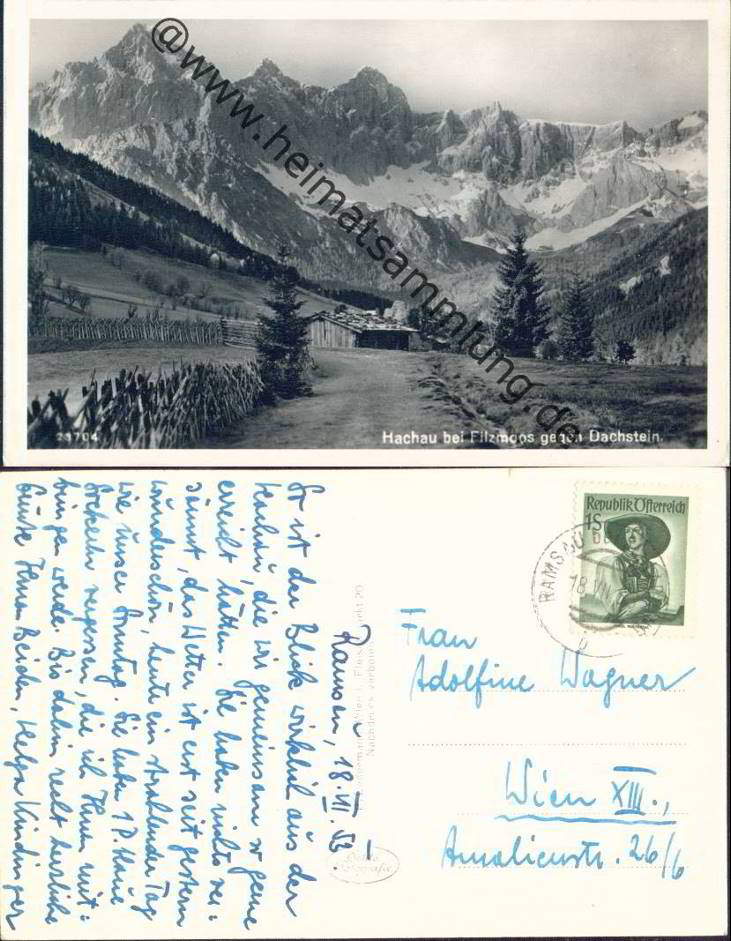 @www.heimatsammlung.de
23704
Hachau bei Filzmoos gegen Dachstein.
Republik Österreich
1S
RAMSAU
18.VI
Ramsau, 18.VI.53.
So ist der Blick wirklich aus der
Hachau, die wir gemeinsam so gerne
erreicht hätten. Sie haben nichts ver=
säumt, das Wetter ist erst seit gestern
wunderschön, heute ein strahlender Tag
wie unser Sonntag. Sie haben 1 P. kleine
Sockerln vergessen, die ich Ihnen mit=
bringen werde. Bis dahin recht herzliche
Grüße Ihnen Beiden, Helga Kindinger
Nachdruck verboten
Frau
Adolfine Wagner
Wien XIII.,
Amalienstr. 26/6